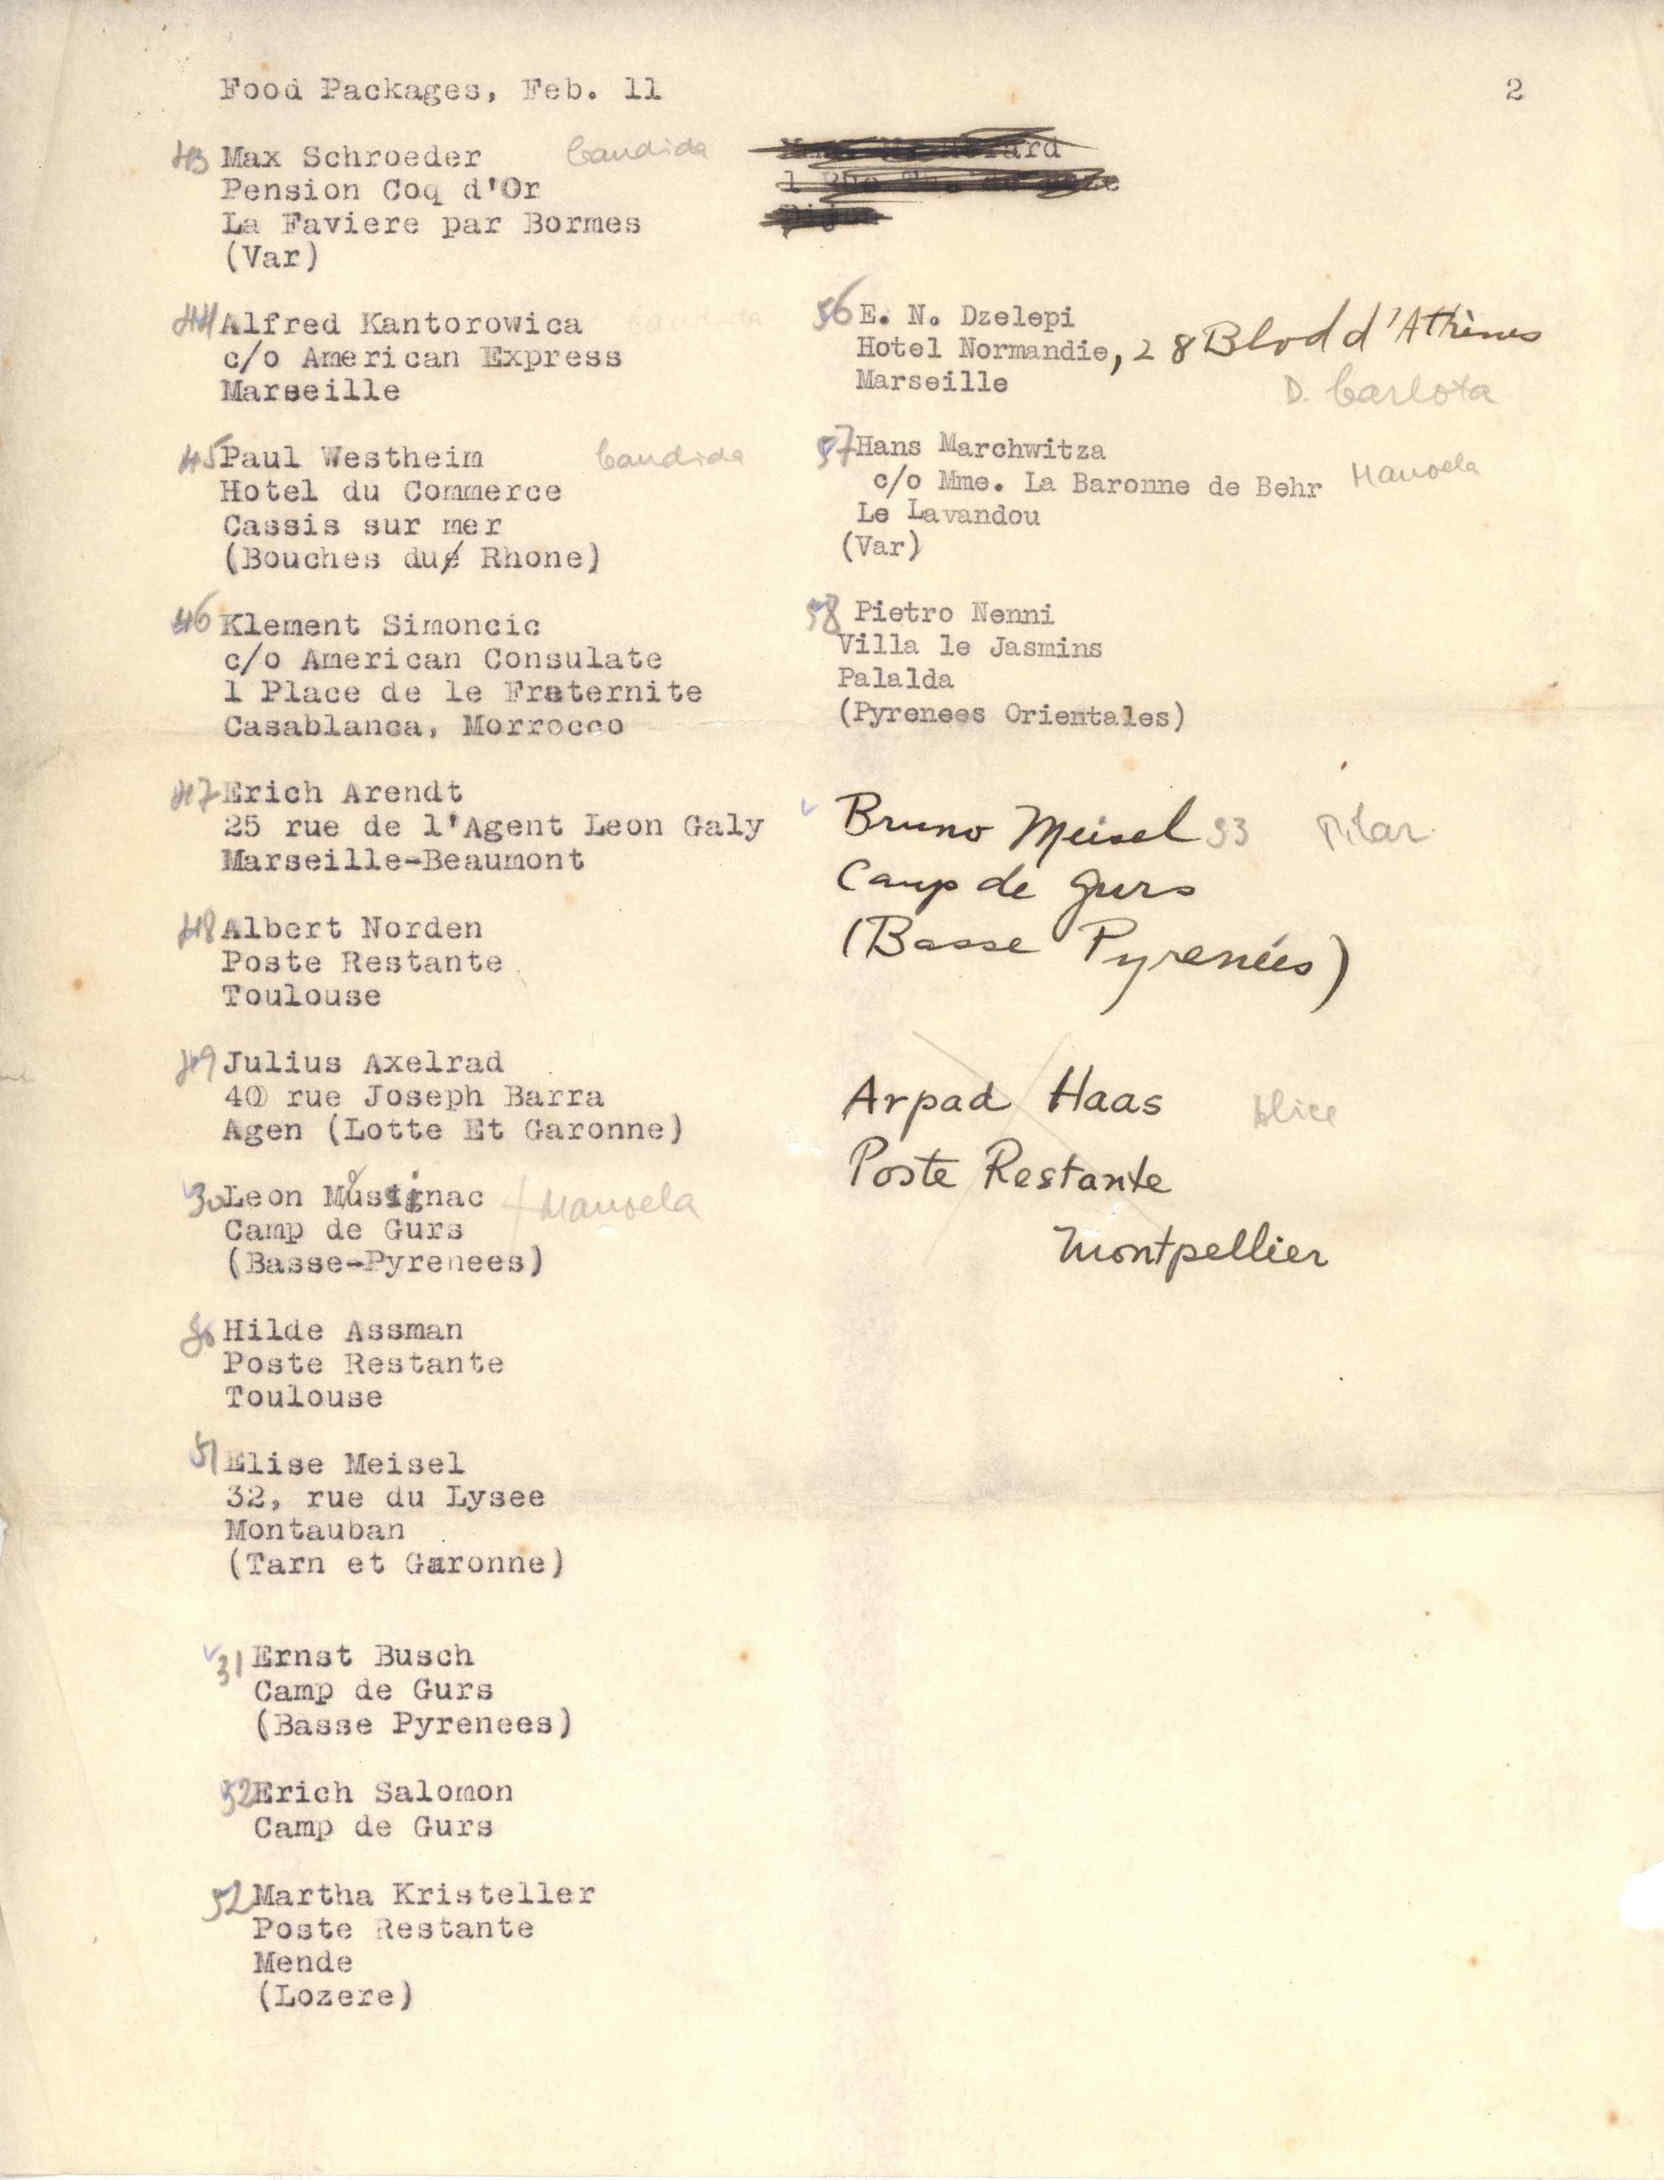 Food Packages, Feb. 11
2
43 Max Schroeder Candida
Pension Coq d'Or
La Faviere par Bormes
(Var)
44 Alfred Kantorowica
c/o American Express
Marseille
45 Paul Westheim Candida
Hotel du Commerce
Cassis sur mer
(Bouches du Rhone)
46 Klement Simoncic
c/o American Consulate
1 Place de le Fraternite
Casablanca, Morrocco
47 Erich Arendt
25 rue de l'Agent Leon Galy
Marseille-Beaumont
48 Albert Norden
Poste Restante
Toulouse
49 Julius Axelrad
40 rue Joseph Barra
Agen (Lotte Et Garonne)
30 Leon Manoela
Camp de Gurs
(Basse-Pyrenees)
Hilde Assman
Poste Restante
Toulouse
51 Elise Meisel
32, rue du Lysee
Montauban
(Tarn et Garonne)
31 Ernst Busch
Camp de Gurs
(Basse Pyrenees)
32 Erich Salomon
Camp de Gurs
52 Martha Kristeller
Poste Restante
Mende
(Lozere)
56 E. N. Dzelepi
Hotel Normandie, 28 Blvd d'Athènes
Marseille
D. Carlota
57 Hans Marchwitza
c/o Mme. La Baronne de Behr Manoela
Le Lavandou
(Var)
58 Pietro Nenni
Villa le Jasmins
Palalda
(Pyrenees Orientales)
Bruno Meisel 33 Pilar
Camp de Gurs
(Basse Pyrenées)
Arpad Haas Alice
Poste Restante
Montpellier